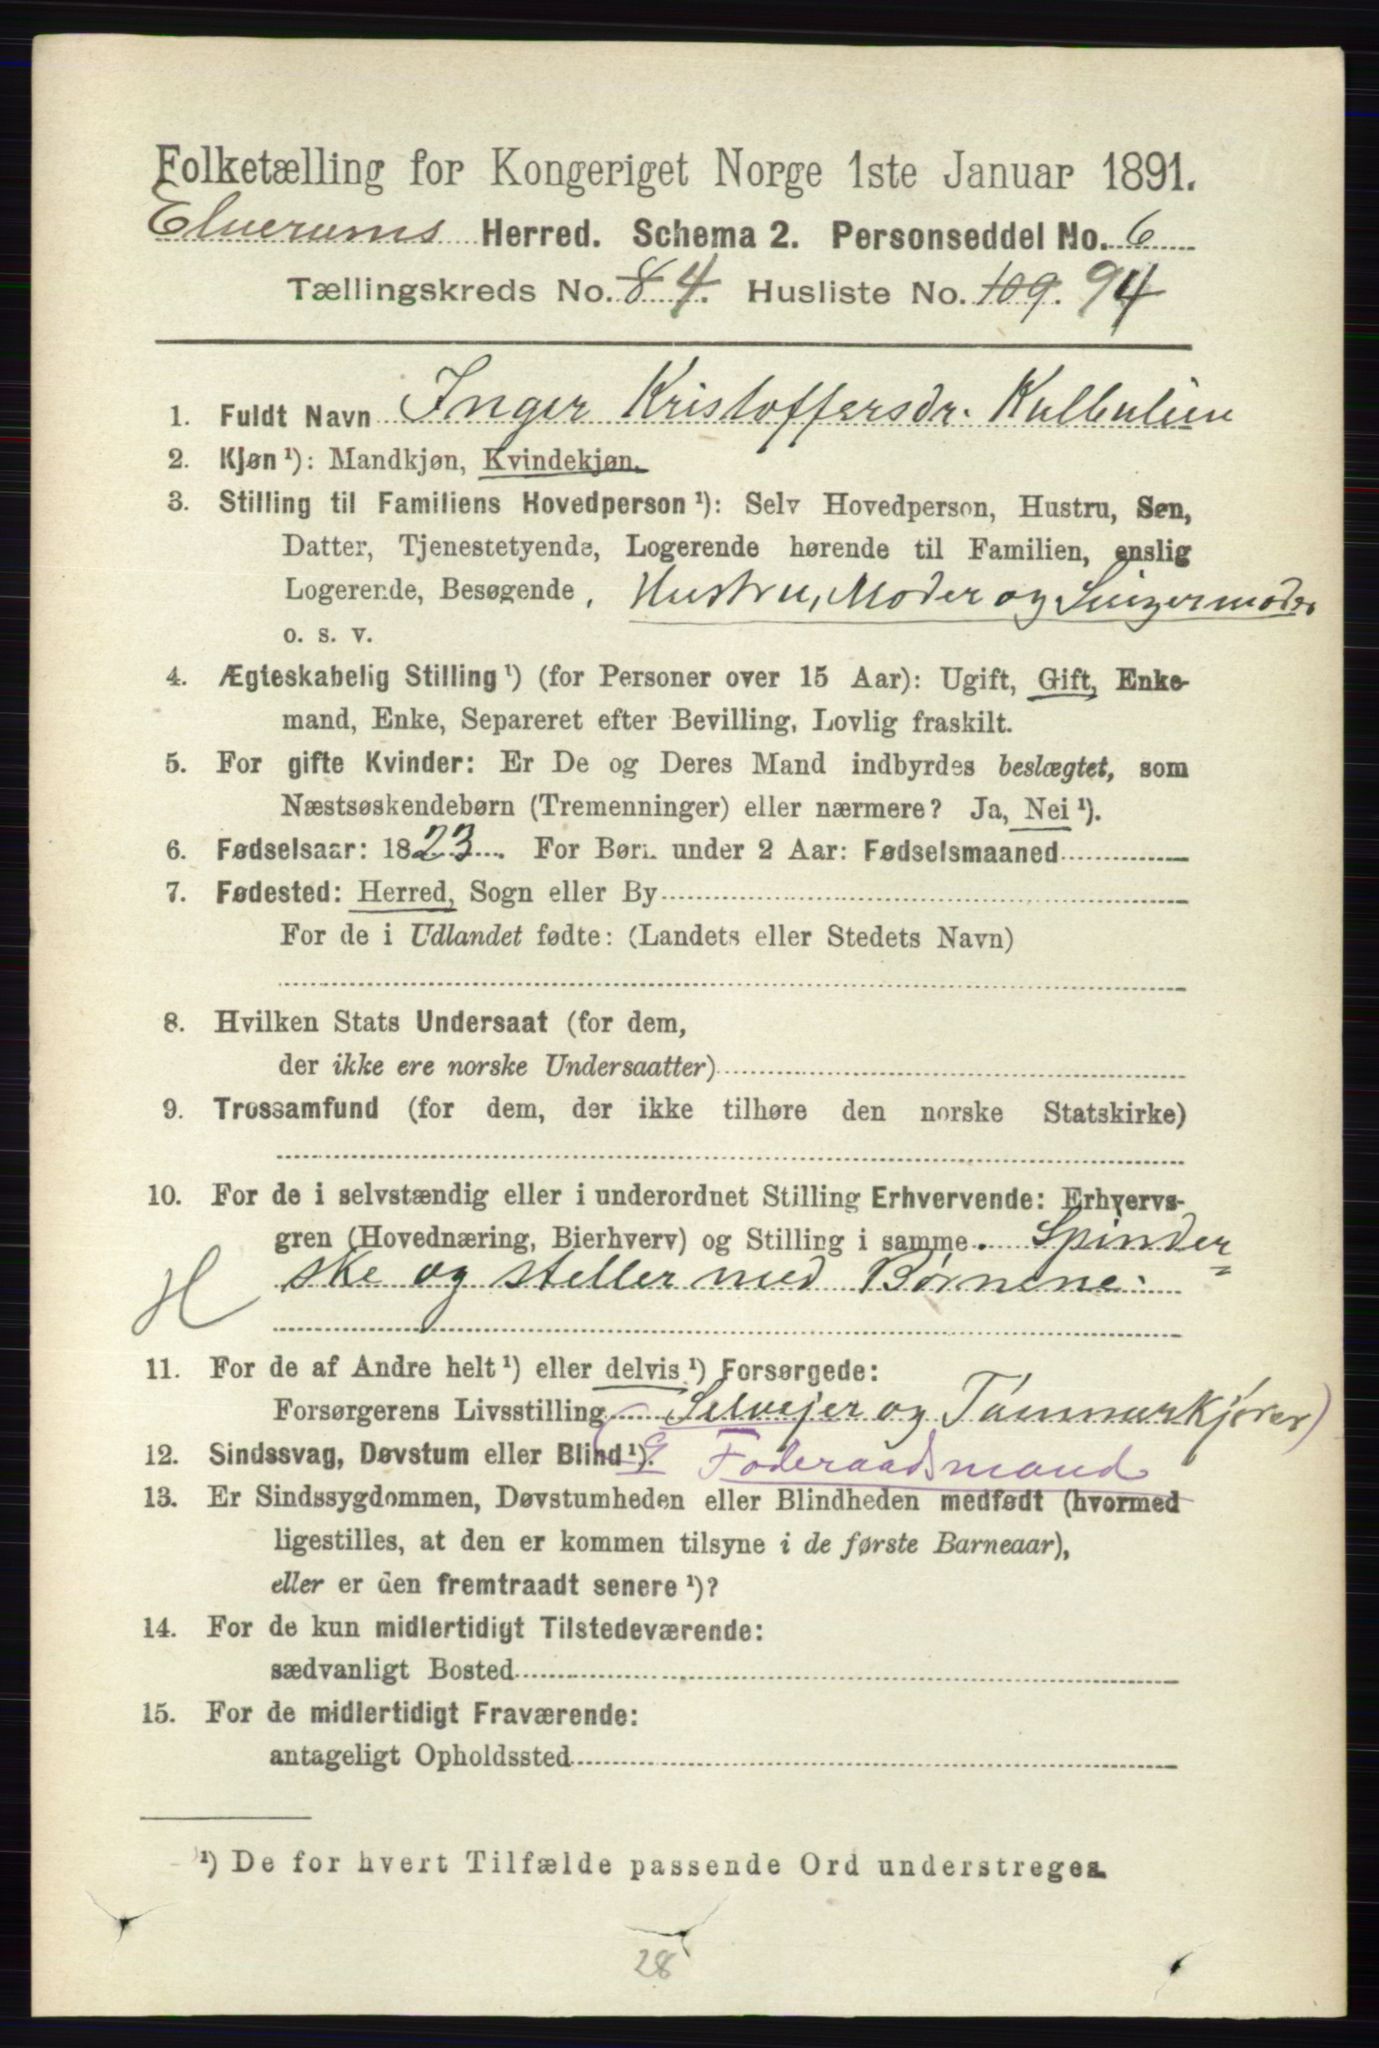 Folketælling for Kongeriget Norge 1ste Januar 1891.
Elverums Herred. Schema 2. Personseddel No. 6
Tællingskreds No. 8 4. Husliste No. 109. 94
1. Fuldt Navn Inger Kristoffersdr. Kulbulien
2. Kjøn ¹): Mandkjøn, Kvindekjøn.
3. Stilling til Familiens Hovedperson ¹): Selv Hovedperson, Hustru, Søn,
Datter, Tjenestetyende, Logerende hørende til Familien, enslig
Logerende, Besøgende . Hustru, Moder og Svigermoder
o. s. v.
4. Ægteskabelig Stilling ¹) (for Personer over 15 Aar): Ugift, Gift, Enke-
mand, Enke, Separeret efter Bevilling, Lovlig fraskilt.
5. For gifte Kvinder: Er De og Deres Mand indbyrdes beslægtet, som
Næstsøskendebørn (Tremenninger) eller nærmere? Ja, Nei ¹).
6. Fødselsaar: 1823. For Børn under 2 Aar: Fødselsmaaned
7. Fødested: Herred, Sogn eller By
For de i Udlandet fødte: (Landets eller Stedets Navn)
8. Hvilken Stats Undersaat (for dem,
der ikke ere norske Undersaatter)
9. Trossamfund (for dem, der ikke tilhøre den norske Statskirke)
10. For de i selvstændig eller i underordnet Stilling Erhvervende: Erhvervs-
gren (Hovednæring, Bierhverv) og Stilling i samme. Spinder=
H ske og steller med Børnene.
11. For de af Andre helt ¹) eller delvis ¹) Forsørgede:
Forsørgerens Livsstilling (Selvejer og Tømmerkjører)
12. Sindssvag, Døvstum eller Blind ¹). Føderaadsmand
13. Er Sindssygdommen, Døvstumheden eller Blindheden medfødt (hvormed
ligestilles, at den er kommen tilsyne i de første Barneaar),
eller er den fremtraadt senere ¹)?
14. For de kun midlertidigt Tilstedeværende:
sædvanligt Bosted
15. For de midlertidigt Fraværende:
antageligt Opholdssted
¹) De for hvert Tilfælde passende Ord understreges.
28